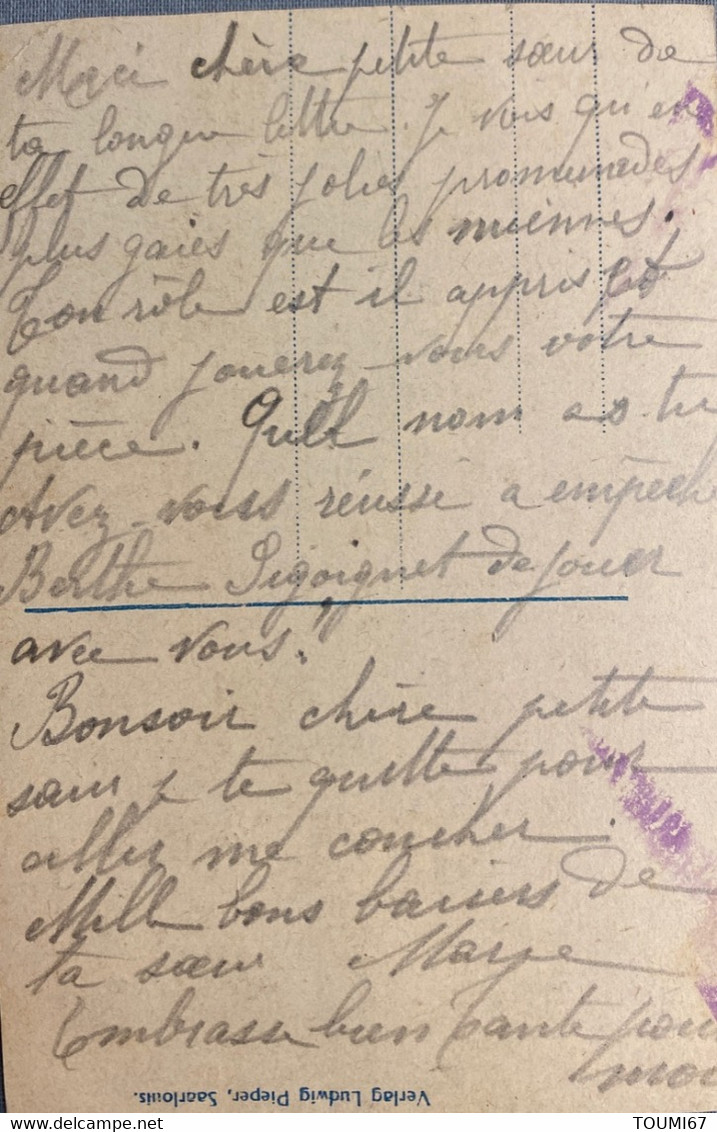 Merci chère petite sœur de
ta longue lettre. Je vois qu'en
effet de très jolies promenades
plus gaies que les miennes.
Ton rôle est il appris et
quand jouerez-vous votre
pièce. Quel nom a
Avez-vous réussi a empêche
Berthe Pigoignet de jouer
avec vous.
Bonsoir chère petite
sœur je te quitte pour
aller me coucher.
Mille bons baisers de
ta sœur
Embrasse bien tante pour
moi
Verlag Ludwig Pieper, Saarlouis.
TOUMI67